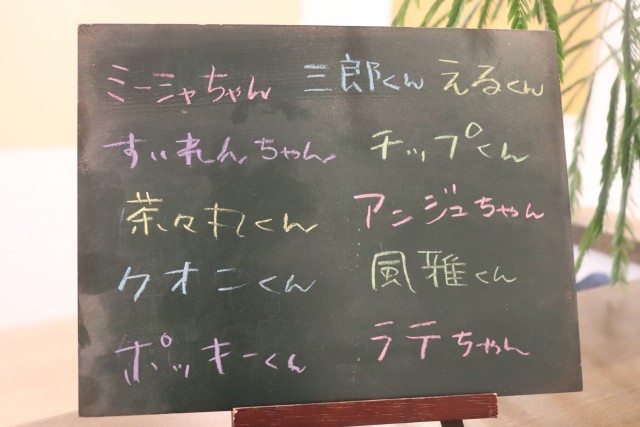 ミーシャちゃん 三郎くん えるくん
すいれんちゃん チップくん
茶々丸くん アンジュちゃん
クオニくん 風雅くん
ポッキーくん ラテちゃん